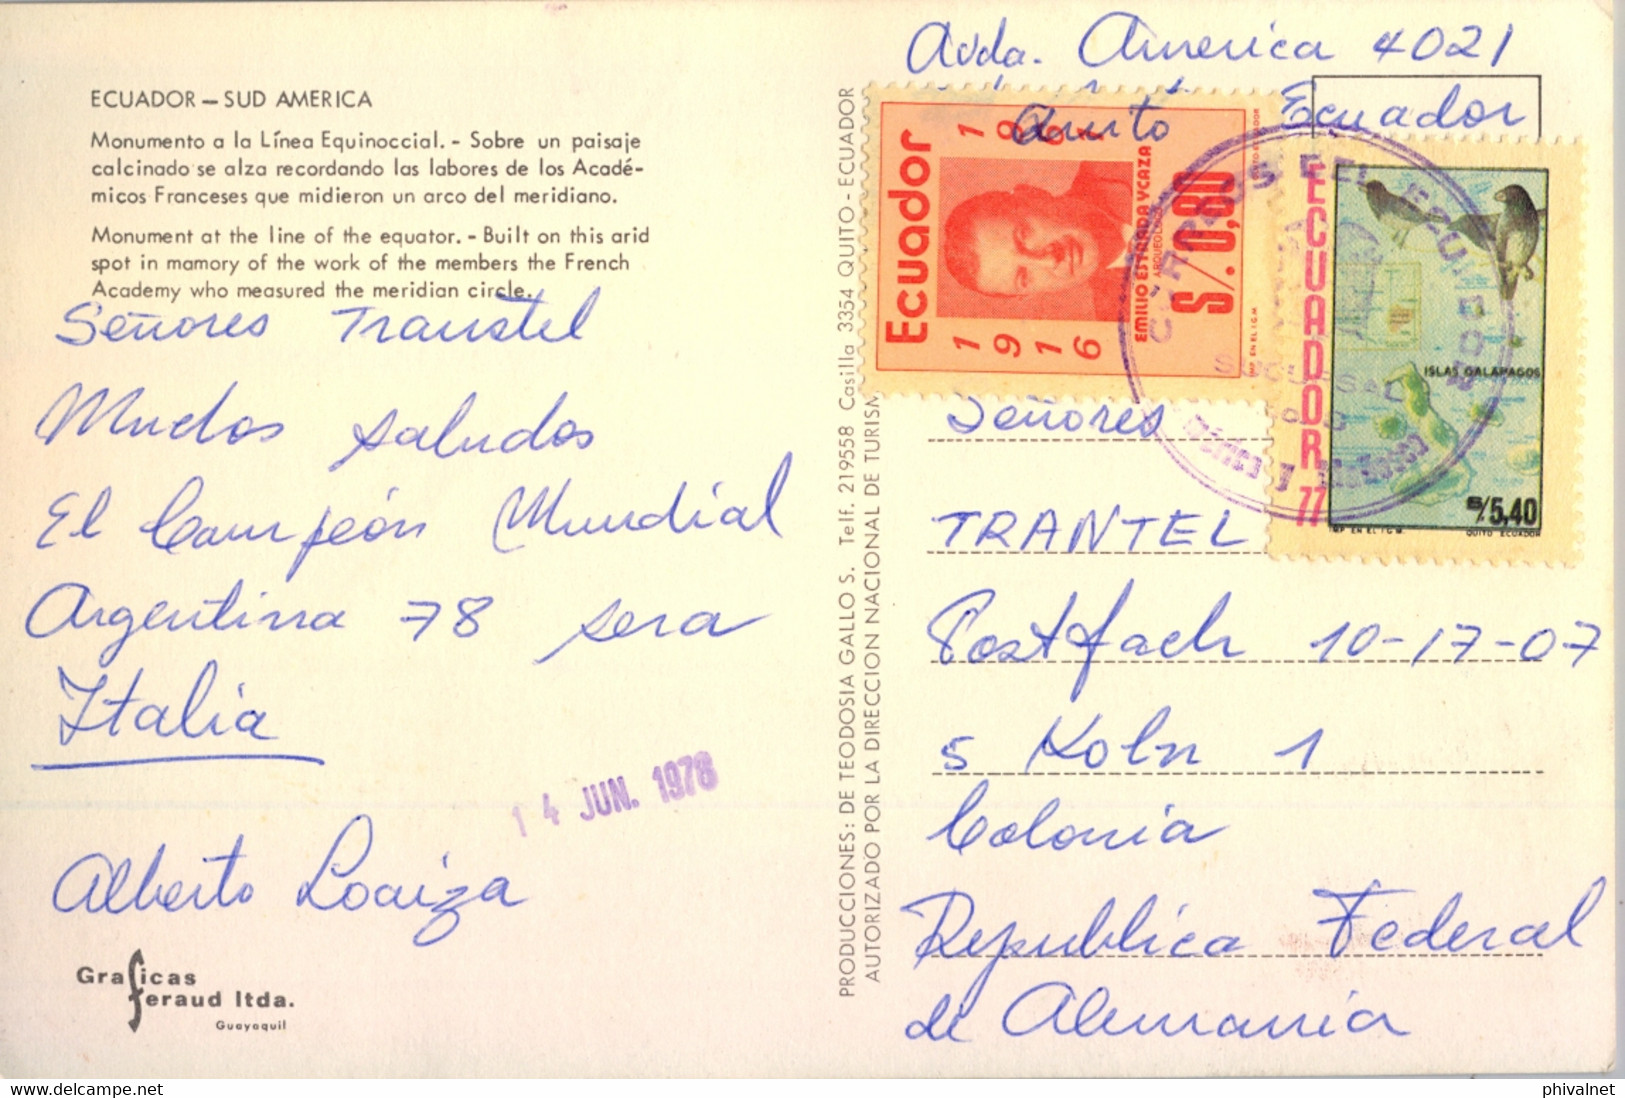 ECUADOR — SUD AMERICA
Monumento a la Línea Equinoccial. - Sobre un paisaje
calcinado se alza recordando las labores de los Acadé-
micos Franceses que midieron un arco del meridiano.
Monument at the line of the equator. - Built on this arid
spot in mamory of the work of the members the French
Academy who measured the meridian circle.
Señores Transtel
Muchos saludos
El Campeón Mundial
Argentina 78 sera
Italia
14 JUN. 1978
Alberto Loaiza
Graficas
feraud ltda.
Guayaquil
PRODUCCIONES: DE TEODOSIA GALLO S. Telf. 219558 Casilla 3354 QUITO - ECUADOR
AUTORIZADO POR LA DIRECCION NACIONAL DE TURISM
Avda. America 4021
Quito Ecuador
Ecuador
1916
1961
EMILIO ESTRADA YCAZA
ARQUEOLOGO
S/. 0,80
IMP. EN EL I.G.M.
ECUADOR 77
ISLAS GALAPAGOS
S/5,40
IMP EN EL I G M.
QUITO ECUADOR
SUCURSAL
Señores
TRANTEL
Postfach 10-17-07
5 Koln 1
Colonia
Republica Federal
de Alemania
phivalnet